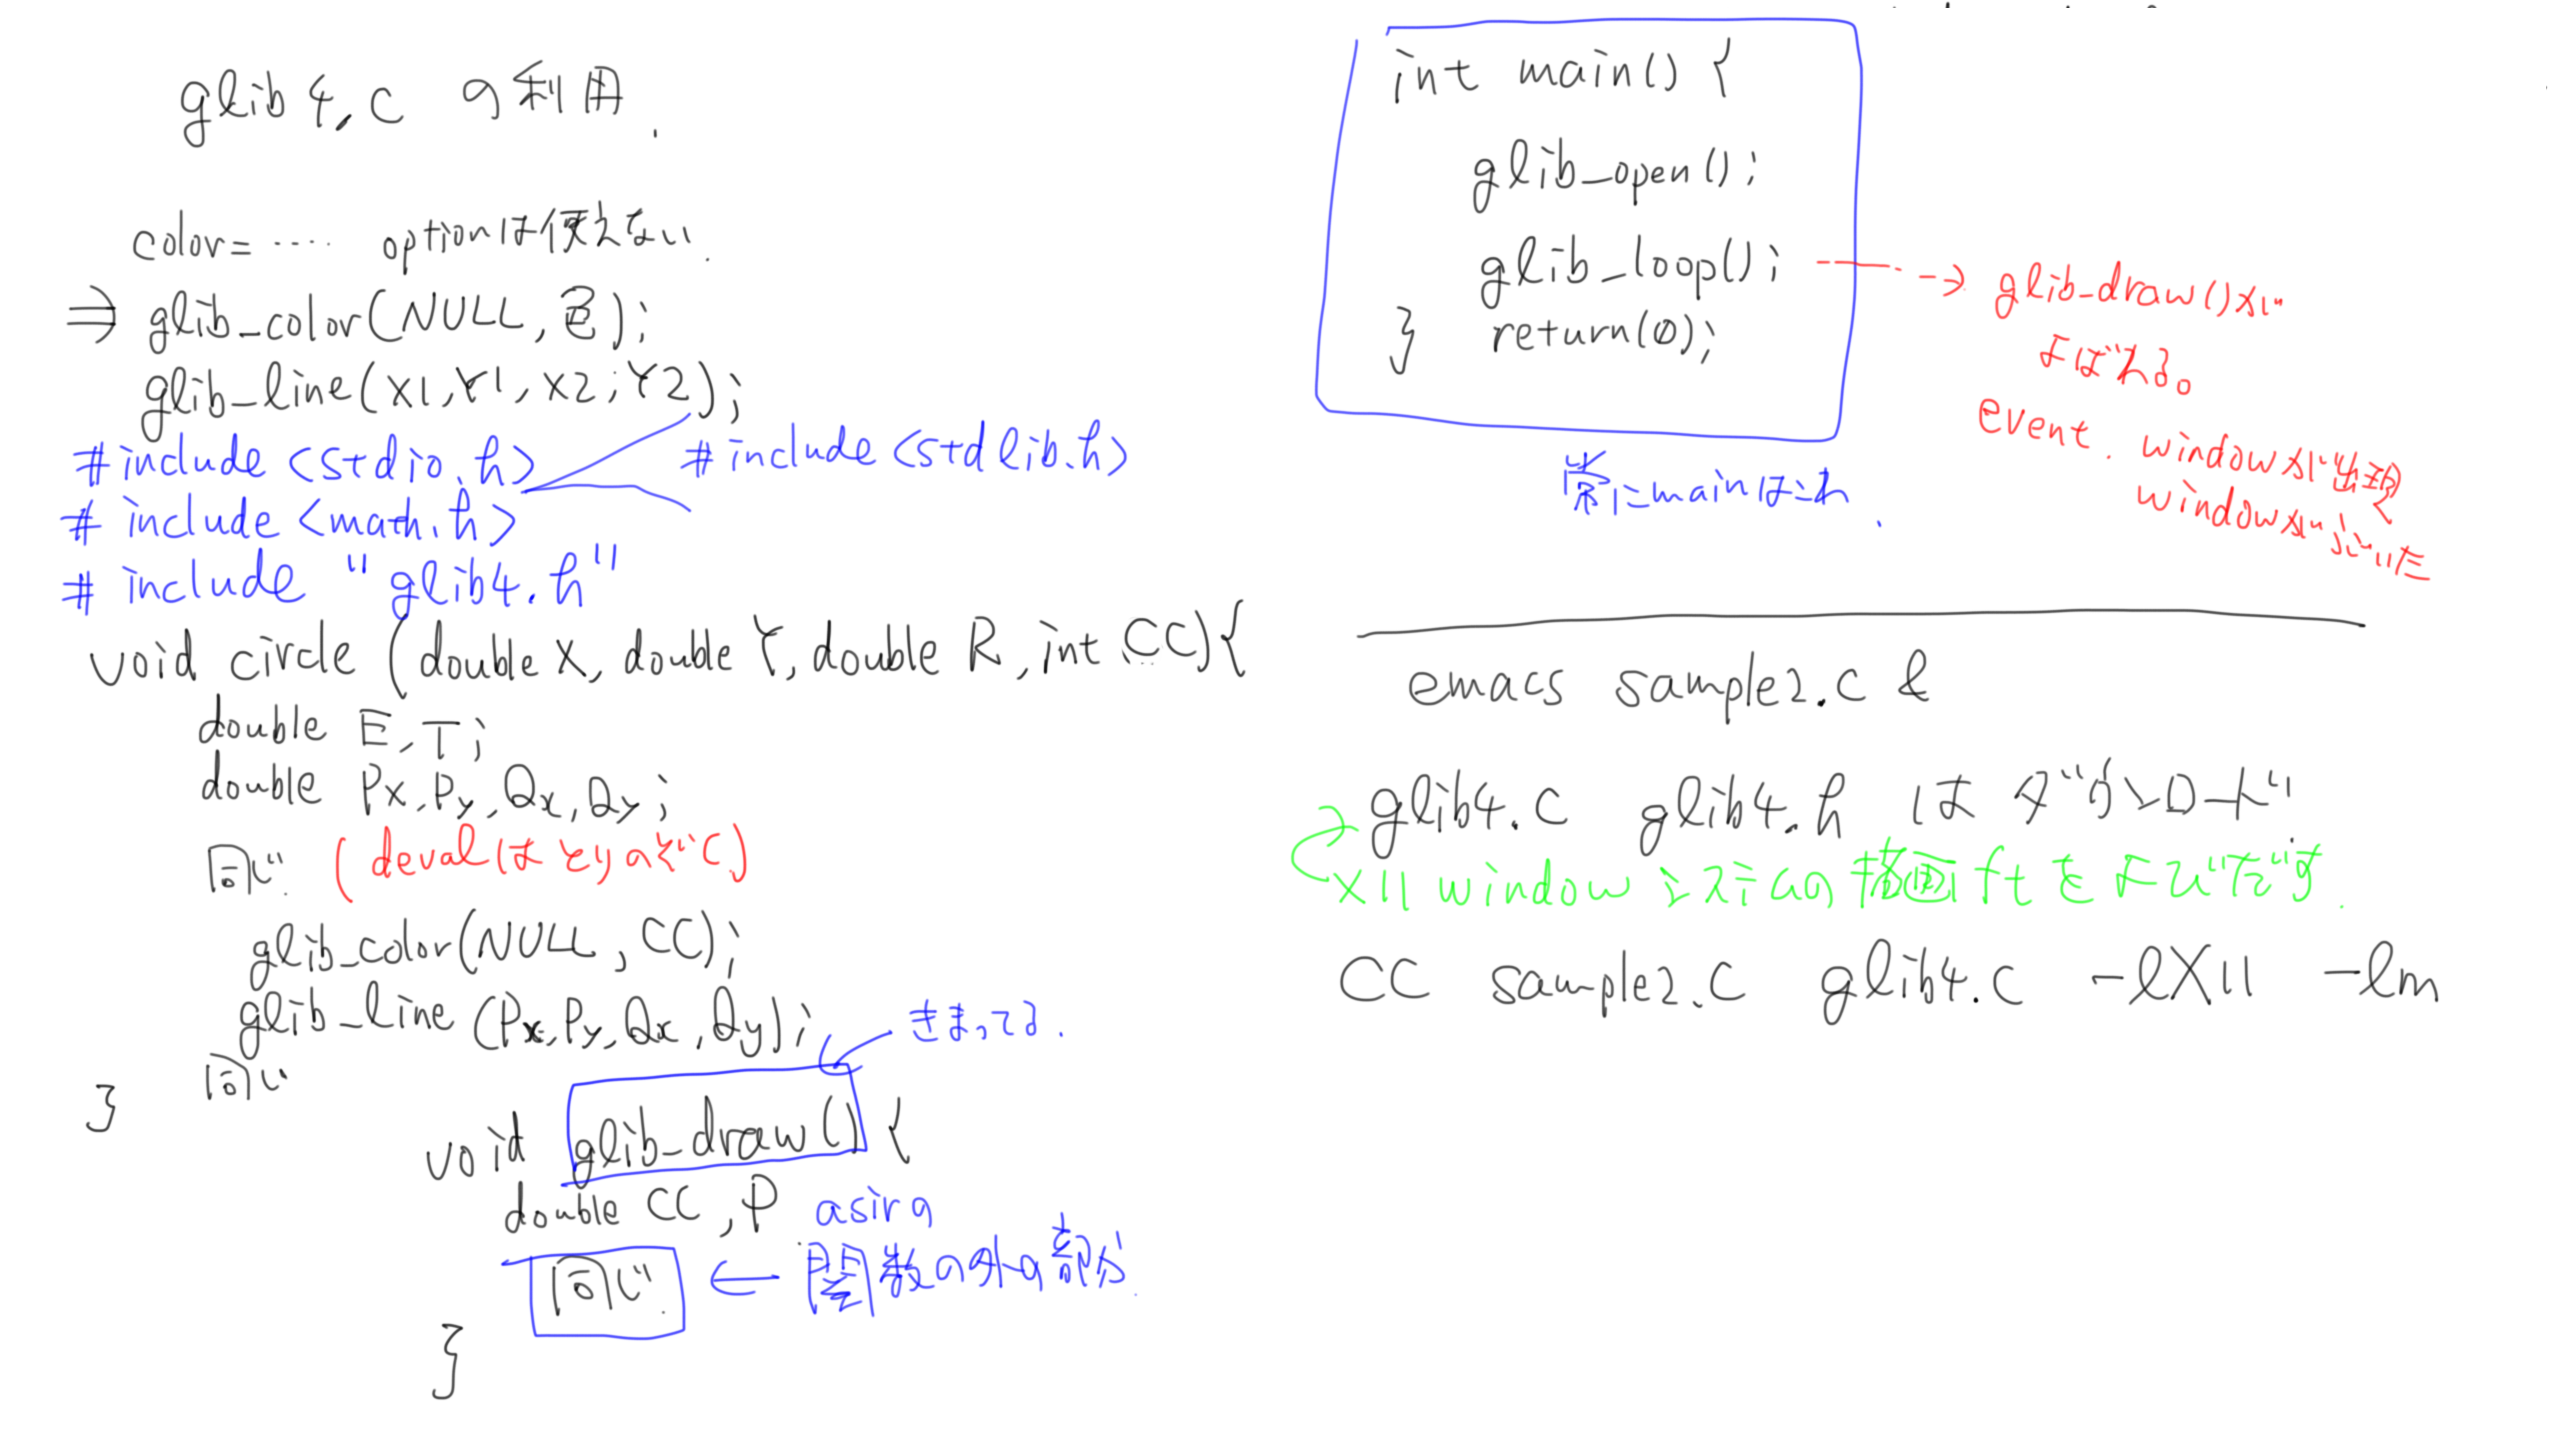 glib4.c の利用.
color= ..... optionは使えない.
⇒ glib_color(NULL, 色);
glib_line(X1,Y1,X2,Y2);
#include <stdio.h>
#include <stdlib.h>
#include <math.h>
#include "glib4.h"
void circle (double X, double Y, double R, int CC){
double E,T;
double Px,Py,Qx,Qy;
同じ. (devalはとりのぞく)
glib_color(NULL, CC);
glib_line (Px,Py,Qx,Qy);
同じ
}
きまってる.
void glib_draw() {
double CC, P
asirの
同じ. ← 関数の外の部分.
}
int main() {
glib_open();
glib_loop(); ---→ glib_draw()が
よばれる。
} return(0);
event. windowが出現
windowが動いた
常にmainはこれ.
emacs sample2.c &
glib4.c glib4.h は ダウンロード.
X11 window システムの描画ftをよびだす.
CC sample2.c glib4.c -lX11 -lm